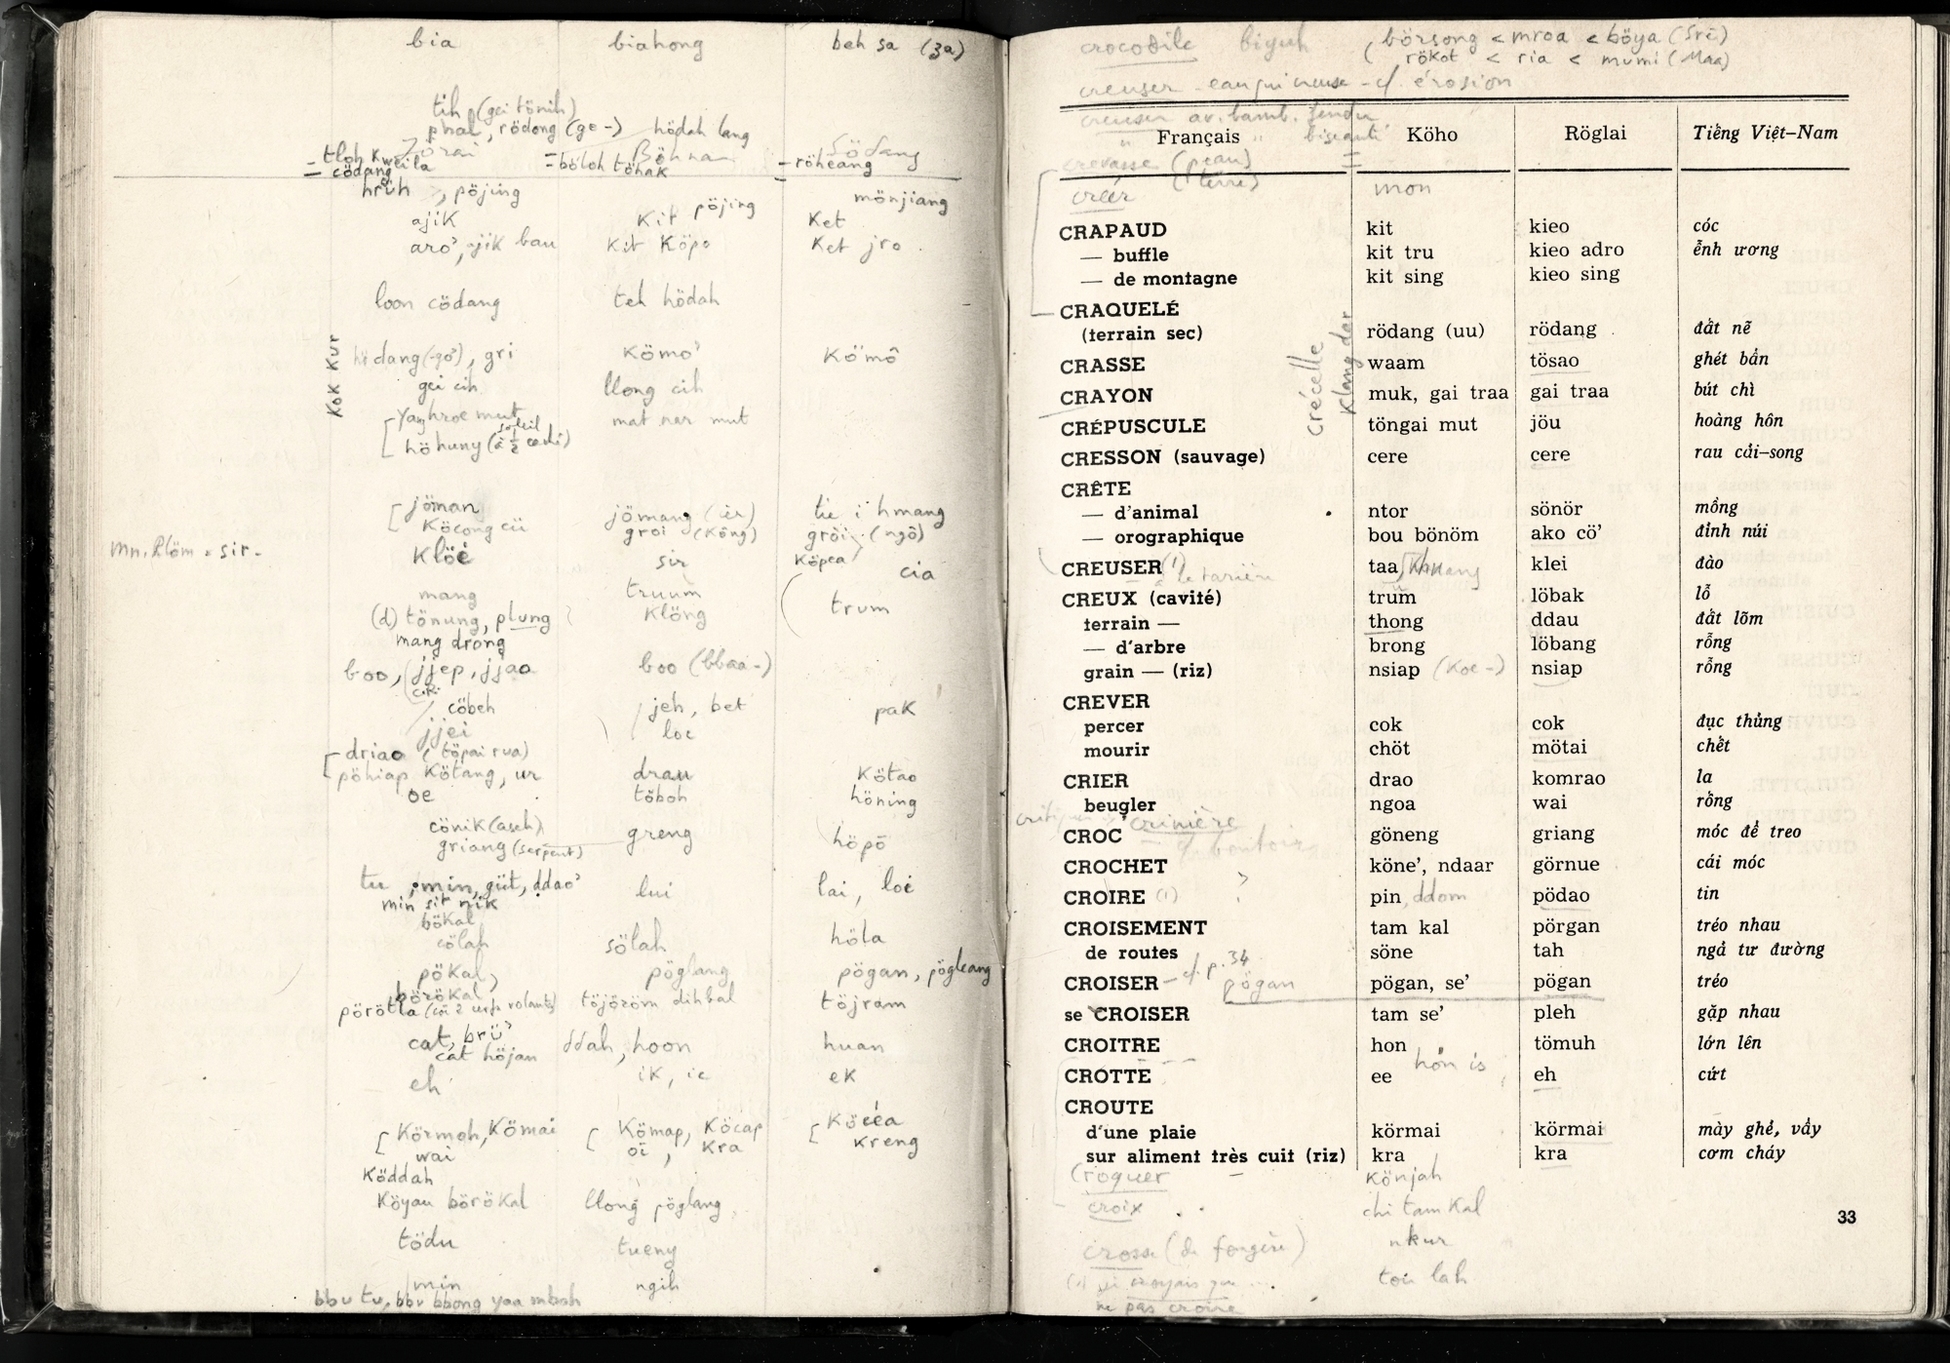 bia biahong beh sa (3a)
tih (gei tönih)
phal, rödong (ge-) hödah lang
Jörai Böhnar Södang
= tloh kweila =böloh töhak =röheang
cödang
hrüh, pöjing pöjing mönjiang
ajik Kit Ket
aro', ajik bau Kit Köpo Ket jro
loon cödang teh hödah
KoK Kur
dang (-go'), gri Kömo' Kömô
gei cih llong cih
Yang hroe mut mat nar mut
höhuny
jöman jömang (ier) tie i hmang
Köcong cü groi (Kông) gröi (ngô)
mn. klöm = sir-
Klöe sir Köpea cia
mang truum trum
(d) tönung, plung Klöng
mang drong
boo, jjep, jjao boo (bbaa-)
cöbeh jeh, bet pak
jjei loe
driao (töpai rua)
pöhiap Kötang, ur drau Kötao
oe töboh höning
cönik (aseh)
griang (serpent) greng höpö
tu, min, güt, ddao' lui lai, loi
min sit nik
bökal
cölah sölah höla
pökal, pöglang pögan, pögleang
börökal,
pörötla töjöröm dihbal töjram
cat, brü' ddah, hoon huan
cat höjan
eh ik, ie ek
Körmoh, Kömai Kömap, Köcap Köeëa
wai oi, Kra Kreng
Köddah
Köyau börökal llong pöglang
tödu tueny
min ngih
bbu tu, bbu bbong yaa mboh
crocodile biyuh (börsong < mroa < böya (Srê)
rökot < ria < mumi (Maa)
creuser - eau qui creuse - cf. érosion
creuser av. bamb. fendu
Français " biseauté Köho Röglai Tiếng Việt-Nam
crevasse (peau) =
(terre)
créer mon
CRAPAUD kit kieo cóc
— buffle kit tru kieo adro ễnh ương
— de montagne kit sing kieo sing
CRAQUELÉ
(terrain sec) rödang (uu) rödang đất nẻ
crécelle Klang dar
CRASSE waam tösao ghét bẩn
CRAYON muk, gai traa gai traa bút chì
CRÉPUSCULE töngai mut jöu hoàng hôn
CRESSON (sauvage) cere cere rau cải-song
CRÊTE
— d'animal ntor sönör mồng
— orographique bou bönöm ako cö' đỉnh núi
CREUSER (1) taa klei đào
à la tarière
CREUX (cavité) trum löbak lỗ
terrain — thong ddau đất lõm
— d'arbre brong löbang rỗng
grain — (riz) nsiap (Koe-) nsiap rỗng
CREVER
percer cok cok đục thủng
mourir chöt mötai chết
CRIER drao komrao la
beugler ngoa wai rống
crinière
CROC göneng griang móc để treo
cf. boutoir
CROCHET köne', ndaar görnue cái móc
CROIRE (1) pin, ddom pödao tin
CROISEMENT tam kal pörgan tréo nhau
de routes söne tah ngả tư đường
CROISER - cf. p. 34 pögan, se' pögan tréo
pögan
se CROISER tam se' pleh gặp nhau
CROITRE hon tömuh lớn lên
hön is
CROTTE ee eh cứt
CROUTE
d'une plaie körmai körmai mày ghẻ, vảy
sur aliment très cuit (riz) kra kra cơm cháy
croquer könjah
croix chi tam kal
33
crosse (de fougère) nkur
(1) je croyais que ... toi lah
ne pas croire